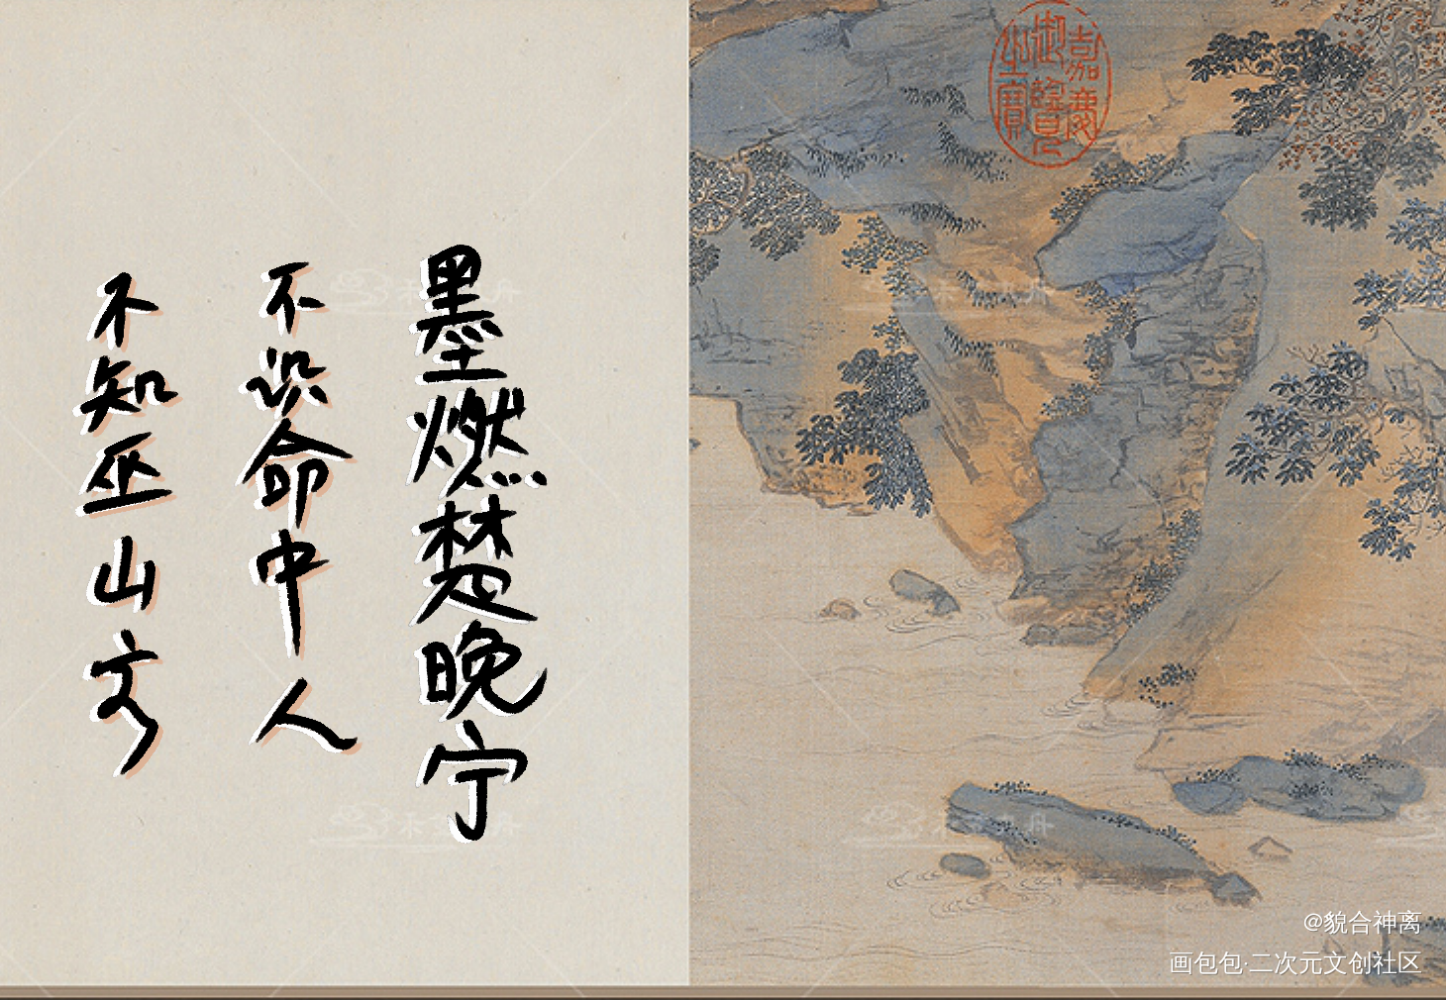 墨燃楚晚宁
不识命中人
不知巫山玄
嘉慶
御覽
之寶
@貌合神离
画包包·二次元文创社区